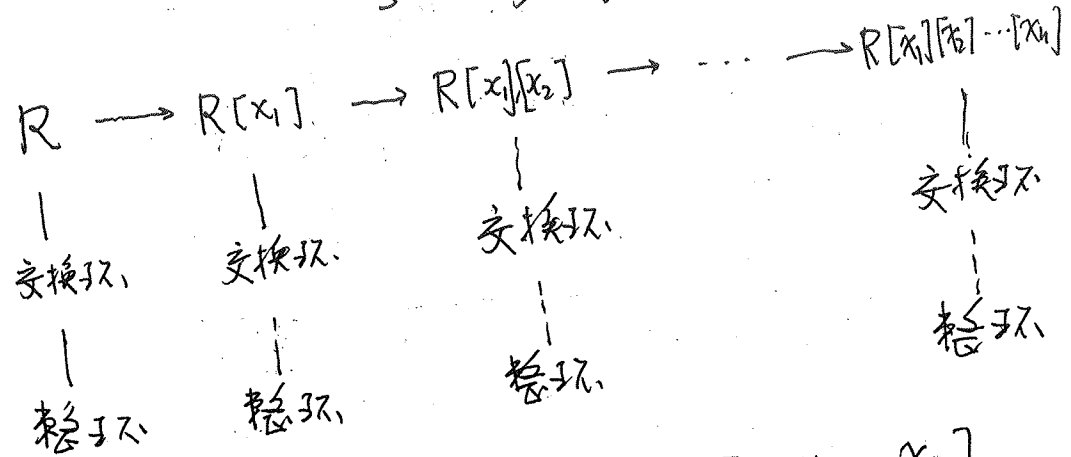 R → R[x₁] → R[x₁][x₂] → ⋯ → R[x₁][x₂]⋯[xₙ]
交换环 交换环 交换环 交换环
整环 整环 整环 整环
xₙ]